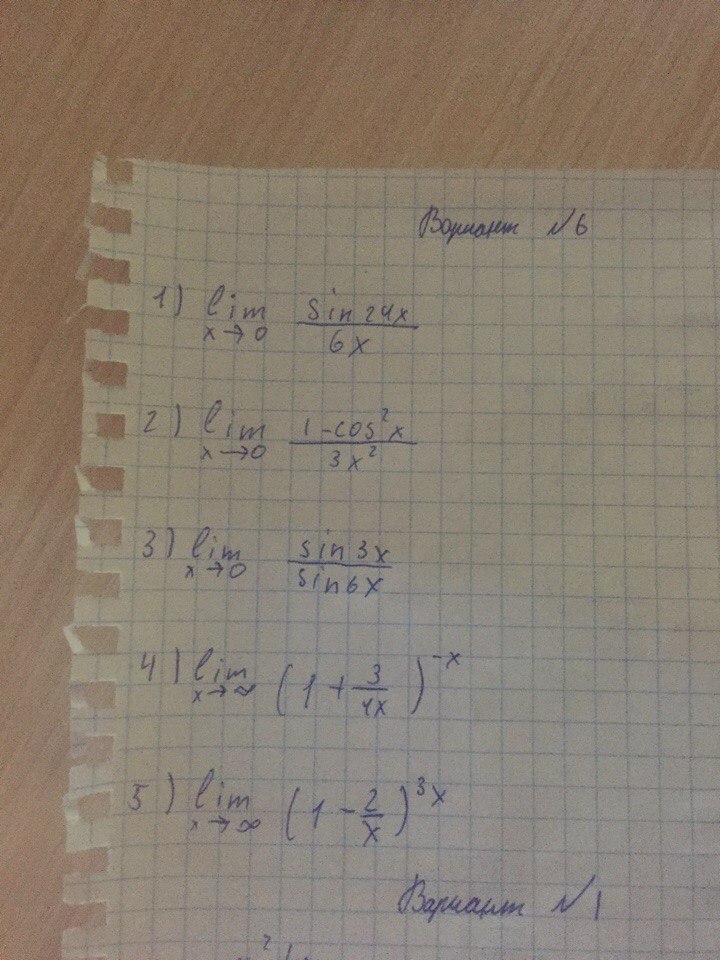 Вариант №6
1) lim x→0 sin 24x / 6x
2) lim x→0 1-cos²x / 3x²
3) lim x→0 sin 3x / sin 6x
4) lim x→∞ (1 + 3/4x)^-x
5) lim x→∞ (1 - 2/x)^3x
Вариант №1